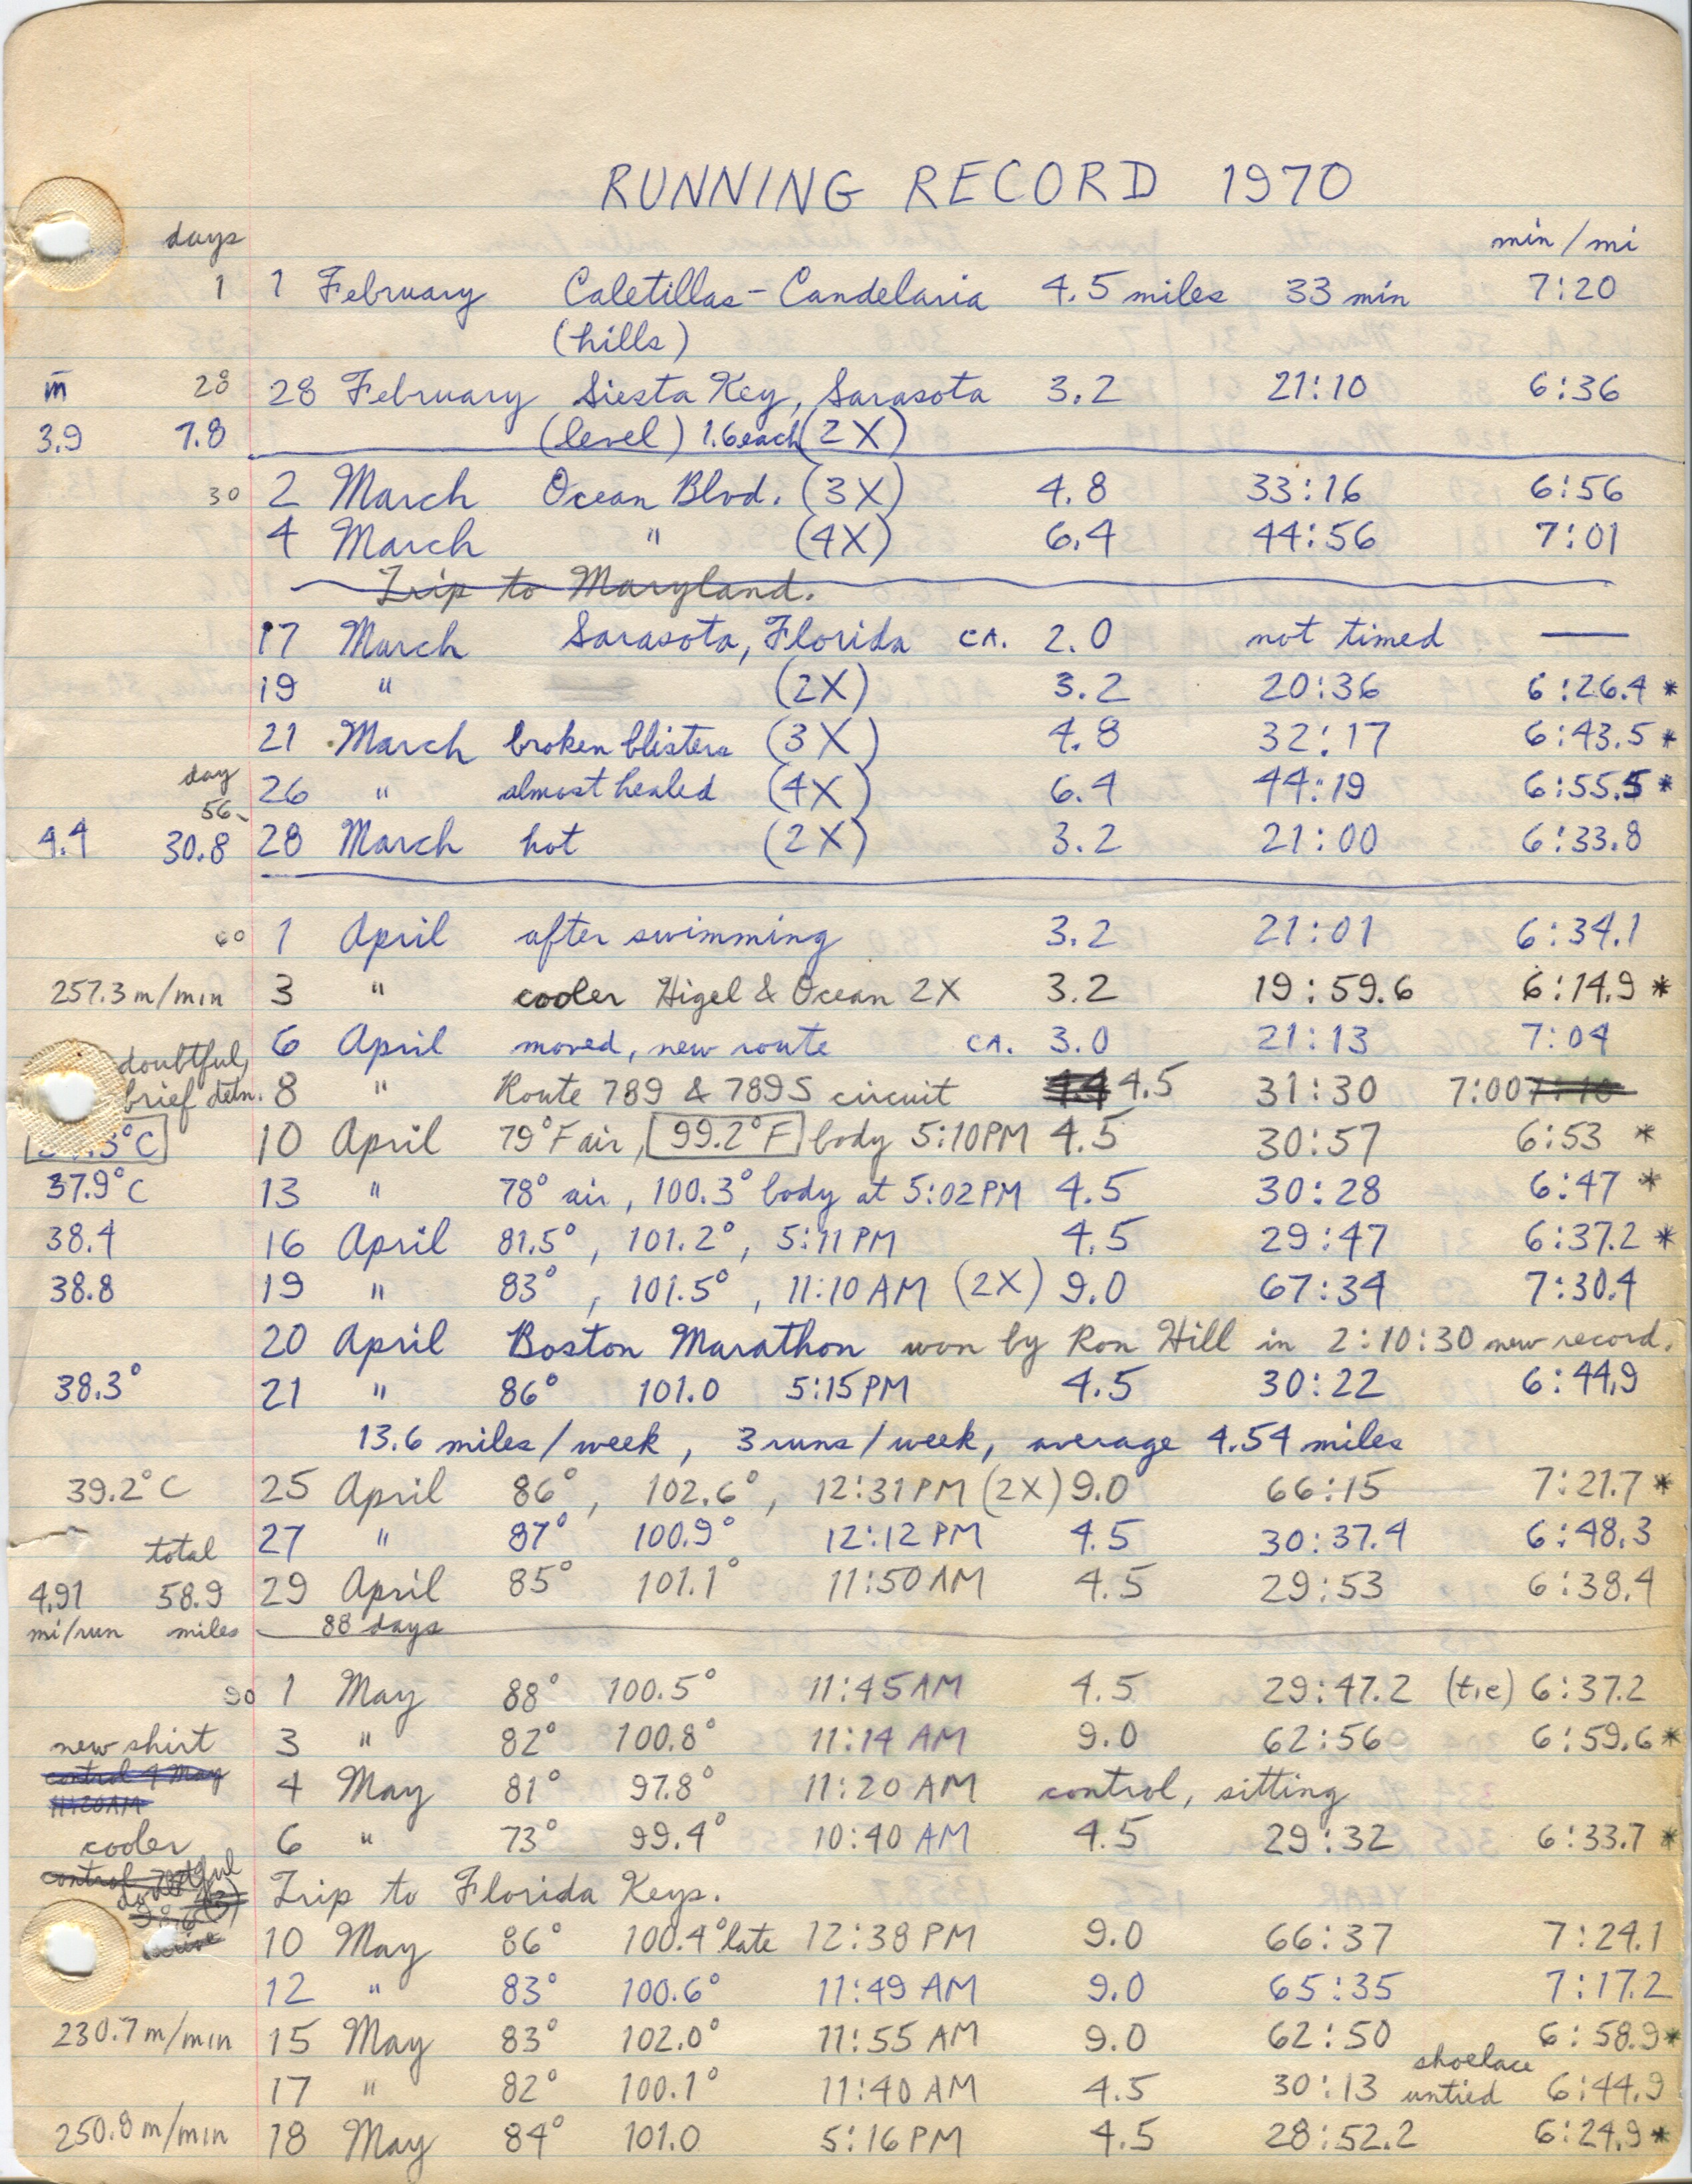 RUNNING RECORD 1970
days min/mi
1 1 February Caletillas - Candelaria 4.5 miles 33 min 7:20
(hills)
m̄ 28 28 February Siesta Key, Sarasota 3.2 21:10 6:36
3.9 7.8 (level) 1.6 each (2X)
30 2 March Ocean Blvd. (3X) 4.8 33:16 6:56
4 March " (4X) 6.4 44:56 7:01
Trip to Maryland.
17 March Sarasota, Florida CA. 2.0 not timed —
19 " (2X) 3.2 20:36 6:26.4 *
21 March broken blisters (3X) 4.8 32:17 6:43.5 *
day
56 26 " almost healed (4X) 6.4 44:19 6:55.5 *
4.4 30.8 28 March hot (2X) 3.2 21:00 6:33.8
60 1 April after swimming 3.2 21:01 6:34.1
257.3 m/min 3 " cooler Higel & Ocean 2X 3.2 19:59.6 6:14.9 *
6 April moved, new route CA. 3.0 21:13 7:04
doubtful,
brief detn. 8 " Route 789 & 789S circuit 4.4 4.5 31:30 7:00 7:10
3°C 10 April 79°F air, 99.2°F body 5:10PM 4.5 30:57 6:53 *
37.9°C 13 " 78° air, 100.3° body at 5:02PM 4.5 30:28 6:47 *
38.4 16 April 81.5°, 101.2°, 5:11PM 4.5 29:47 6:37.2 *
38.8 19 " 83°, 101.5°, 11:10AM (2X) 9.0 67:34 7:30.4
20 April Boston Marathon won by Ron Hill in 2:10:30 new record.
38.3° 21 " 86° 101.0 5:15PM 4.5 30:22 6:44.9
13.6 miles/week, 3 runs/week, average 4.54 miles
39.2°C 25 April 86°, 102.6°, 12:31PM (2X) 9.0 66:15 7:21.7 *
27 " 87° 100.9° 12:12PM 4.5 30:37.4 6:48.3
total
4.91 58.9 29 April 85° 101.1° 11:50AM 4.5 29:53 6:38.4
mi/run miles 88 days
90 1 May 88° 100.5° 11:45AM 4.5 29:47.2 (tie) 6:37.2
new shirt 3 " 82° 100.8° 11:14 AM 9.0 62:56 6:59.6 *
control 4 May
11:20AM 4 May 81° 97.8° 11:20 AM control, sitting
cooler 6 " 73° 99.4° 10:40 AM 4.5 29:32 6:33.7 *
control doubtful
Trip to Florida Keys.
10 May 86° 100.4° late 12:38 PM 9.0 66:37 7:24.1
12 " 83° 100.6° 11:49 AM 9.0 65:35 7:17.2
230.7 m/min 15 May 83° 102.0° 11:55 AM 9.0 62:50 6:58.9 *
shoelace
17 " 82° 100.1° 11:40 AM 4.5 30:13 untied 6:44.9
250.8 m/min 18 May 84° 101.0 5:16PM 4.5 28:52.2 6:24.9 *